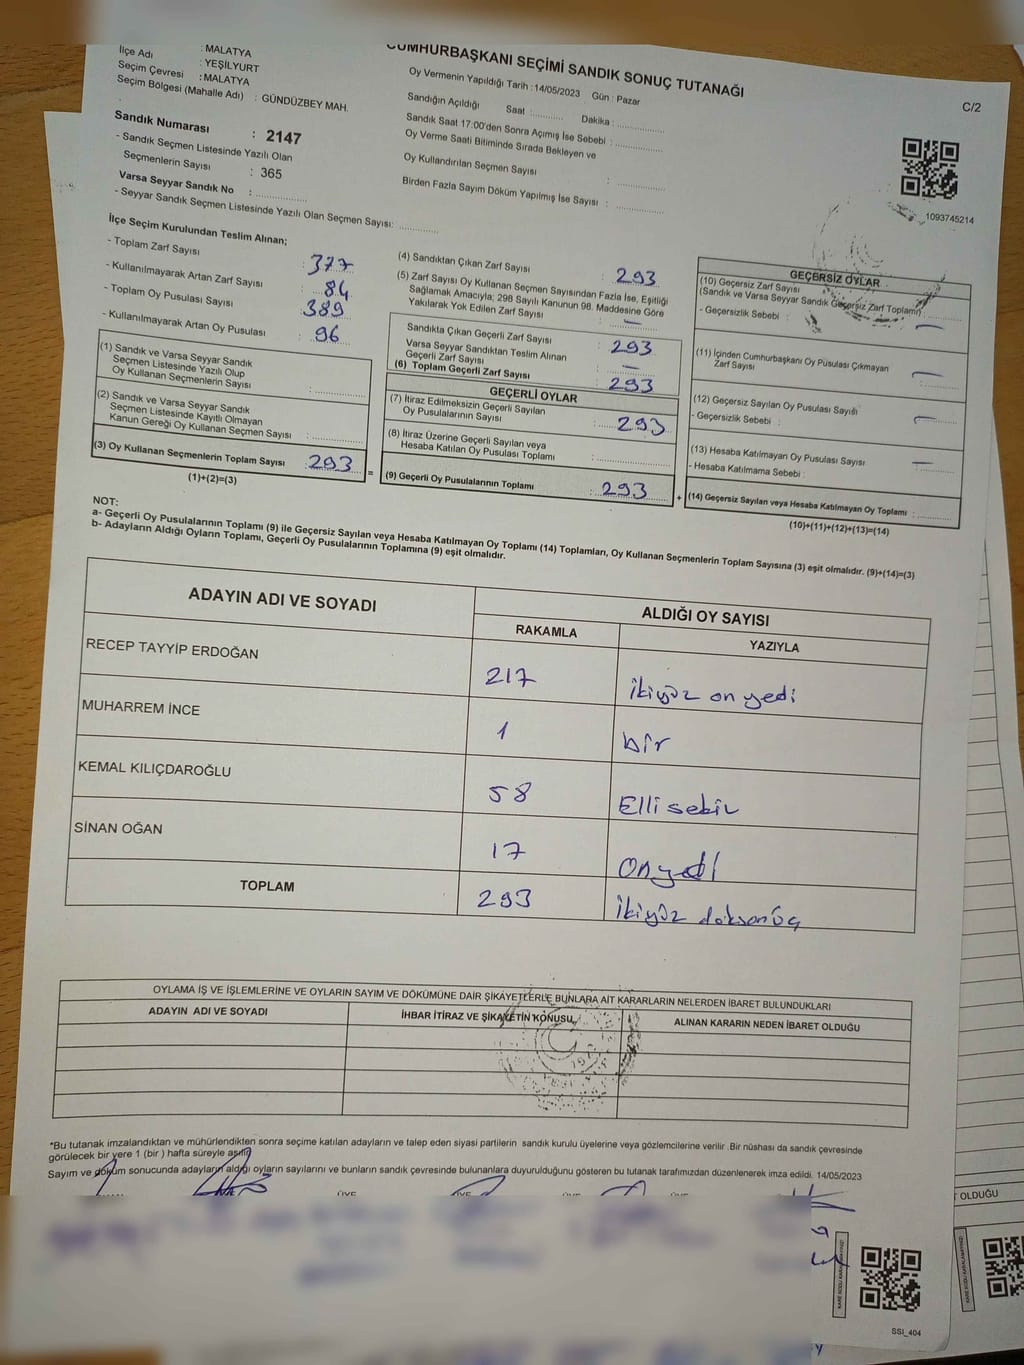 CUMHURBAŞKANI SEÇİMİ SANDIK SONUÇ TUTANAĞI
C/2
: MALATYA
İlçe Adı : YEŞİLYURT
Seçim Çevresi : MALATYA
Seçim Bölgesi (Mahalle Adı) : GÜNDÜZBEY MAH.
Sandık Numarası : 2147
- Sandık Seçmen Listesinde Yazılı Olan
Seçmenlerin Sayısı : 365
Varsa Seyyar Sandık No : ............
- Seyyar Sandık Seçmen Listesinde Yazılı Olan Seçmen Sayısı: ............
Oy Vermenin Yapıldığı Tarih : 14/05/2023 Gün : Pazar
Sandığın Açıldığı Saat : ............ Dakika : ............
Sandık Saat 17:00'den Sonra Açımış İse Sebebi : ............
Oy Verme Saati Bitiminde Sırada Bekleyen ve
Oy Kullandırılan Seçmen Sayısı : ............
Birden Fazla Sayım Döküm Yapılmış İse Sayısı : ............
1093745214
İlçe Seçim Kurulundan Teslim Alınan;
- Toplam Zarf Sayısı : 377
- Kullanılmayarak Artan Zarf Sayısı : 84
- Toplam Oy Pusulası Sayısı : 389
- Kullanılmayarak Artan Oy Pusulası : 96
(1) Sandık ve Varsa Seyyar Sandık
Seçmen Listesinde Yazılı Olup
Oy Kullanan Seçmenlerin Sayısı : ............
(2) Sandık ve Varsa Seyyar Sandık
Seçmen Listesinde Kayıtlı Olmayan
Kanun Gereği Oy Kullanan Seçmen Sayısı : ............
(3) Oy Kullanan Seçmenlerin Toplam Sayısı : 293
(1)+(2)=(3)
=
(4) Sandıktan Çıkan Zarf Sayısı : 293
(5) Zarf Sayısı Oy Kullanan Seçmen Sayısından Fazla İse, Eşitliği
Sağlamak Amacıyla; 298 Sayılı Kanunun 98. Maddesine Göre
Yakılarak Yok Edilen Zarf Sayısı : —
Sandıkta Çıkan Geçerli Zarf Sayısı : 293
Varsa Seyyar Sandıktan Teslim Alınan
Geçerli Zarf Sayısı : —
(6) Toplam Geçerli Zarf Sayısı : 293
GEÇERLİ OYLAR
(7) İtiraz Edilmeksizin Geçerli Sayılan
Oy Pusulalarının Sayısı : 293
(8) İtiraz Üzerine Geçerli Sayılan veya
Hesaba Katılan Oy Pusulası Toplamı : ............
(9) Geçerli Oy Pusulalarının Toplamı : 293
+
GEÇERSİZ OYLAR
(10) Geçersiz Zarf Sayısı
(Sandık ve Varsa Seyyar Sandık Geçersiz Zarf Toplamı) : —
- Geçersizlik Sebebi :
(11) İçinden Cumhurbaşkanı Oy Pusulası Çıkmayan
Zarf Sayısı : —
(12) Geçersiz Sayılan Oy Pusulası Sayısı : —
- Geçersizlik Sebebi :
(13) Hesaba Katılmayan Oy Pusulası Sayısı : —
- Hesaba Katılmama Sebebi :
(14) Geçersiz Sayılan veya Hesaba Katılmayan Oy Toplamı : ............
(10)+(11)+(12)+(13)=(14)
NOT:
a- Geçerli Oy Pusulalarının Toplamı (9) ile Geçersiz Sayılan veya Hesaba Katılmayan Oy Toplamı (14) Toplamları, Oy Kullanan Seçmenlerin Toplam Sayısına (3) eşit olmalıdır. (9)+(14)=(3)
b- Adayların Aldığı Oyların Toplamı, Geçerli Oy Pusulalarının Toplamına (9) eşit olmalıdır.
ADAYIN ADI VE SOYADI ALDIĞI OY SAYISI
RAKAMLA YAZIYLA
RECEP TAYYİP ERDOĞAN 217 ikiyüz on yedi
MUHARREM İNCE 1 bir
KEMAL KILIÇDAROĞLU 58 Elli sekiz
SİNAN OĞAN 17 On yedi
TOPLAM 293 ikiyüz doksan üç
OYLAMA İŞ VE İŞLEMLERİNE VE OYLARIN SAYIM VE DÖKÜMÜNE DAİR ŞİKAYETLERLE BUNLARA AİT KARARLARIN NELERDEN İBARET BULUNDUKLARI
ADAYIN ADI VE SOYADI İHBAR İTİRAZ VE ŞİKAYETİN KONUSU ALINAN KARARIN NEDEN İBARET OLDUĞU
*Bu tutanak imzalandıktan ve mühürlendikten sonra seçime katılan adayların ve talep eden siyasi partilerin sandık kurulu üyelerine veya gözlemcilerine verilir. Bir nüshası da sandık çevresinde
görülecek bir yere 1 (bir ) hafta süreyle asılır.
Sayım ve döküm sonucunda adayların aldığı oyların sayılarını ve bunların sandık çevresinde bulunanlara duyurulduğunu gösteren bu tutanak tarafımızdan düzenlenerek imza edildi. 14/05/2023
OLDUĞU
SSI_404